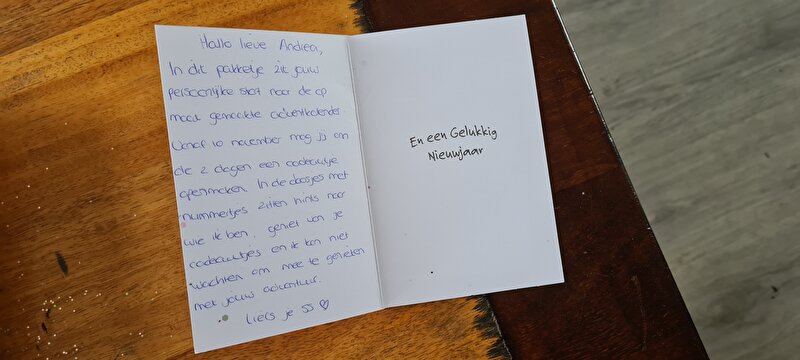 Hallo lieve Andrea,
In dit pakketje zit jouw
persoonlijke start naar de op
maat gemaakte adventkalender
Vanaf 10 november mag jij om
de 2 dagen een cadeautje
openmaken. In de doosjes met
nummertjes zitten hints naar
wie ik ben. geniet van je
cadeautjes en ik kan niet
wachten om mee te genieten
met jouw adventuur.
Liefs je SS ♡
En een Gelukkig
Nieuwjaar